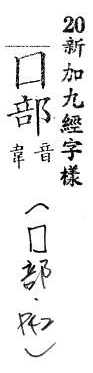 20新加九經字樣
囗部音韋
(囗部·